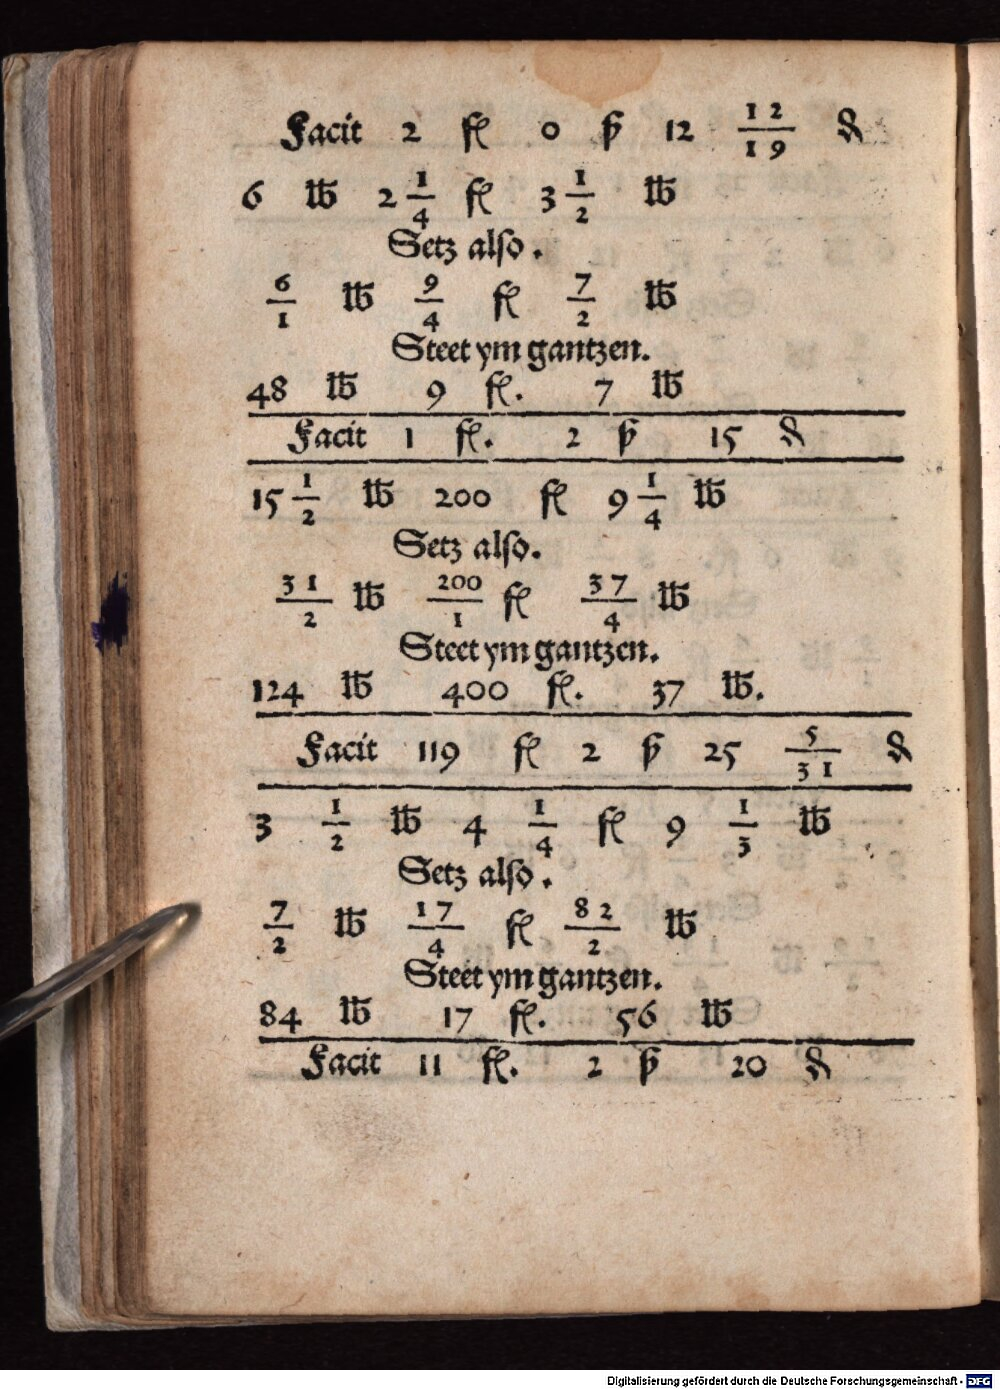 Facit 2 fl 0 ß 12 12/19 ₰
6 lb 2 1/4 fl 3 1/2 lb
Setz also.
6/1 lb 9/4 fl 7/2 lb
Steet ym gantzen.
48 lb 9 fl. 7 lb
Facit 1 fl. 2 ß 15 ₰
15 1/2 lb 200 fl 9 1/4 lb
Setz also.
31/2 lb 200/1 fl 37/4 lb
Steet ym gantzen.
124 lb 400 fl. 37 lb.
Facit 119 fl 2 ß 25 5/31 ₰
3 1/2 lb 4 1/4 fl 9 1/3 lb
Setz also.
7/2 lb 17/4 fl 82/2 lb
Steet ym gantzen.
84 lb 17 fl. 56 lb
Facit 11 fl. 2 ß 20 ₰
Digitalisierung gefördert durch die Deutsche Forschungsgemeinschaft - DFG